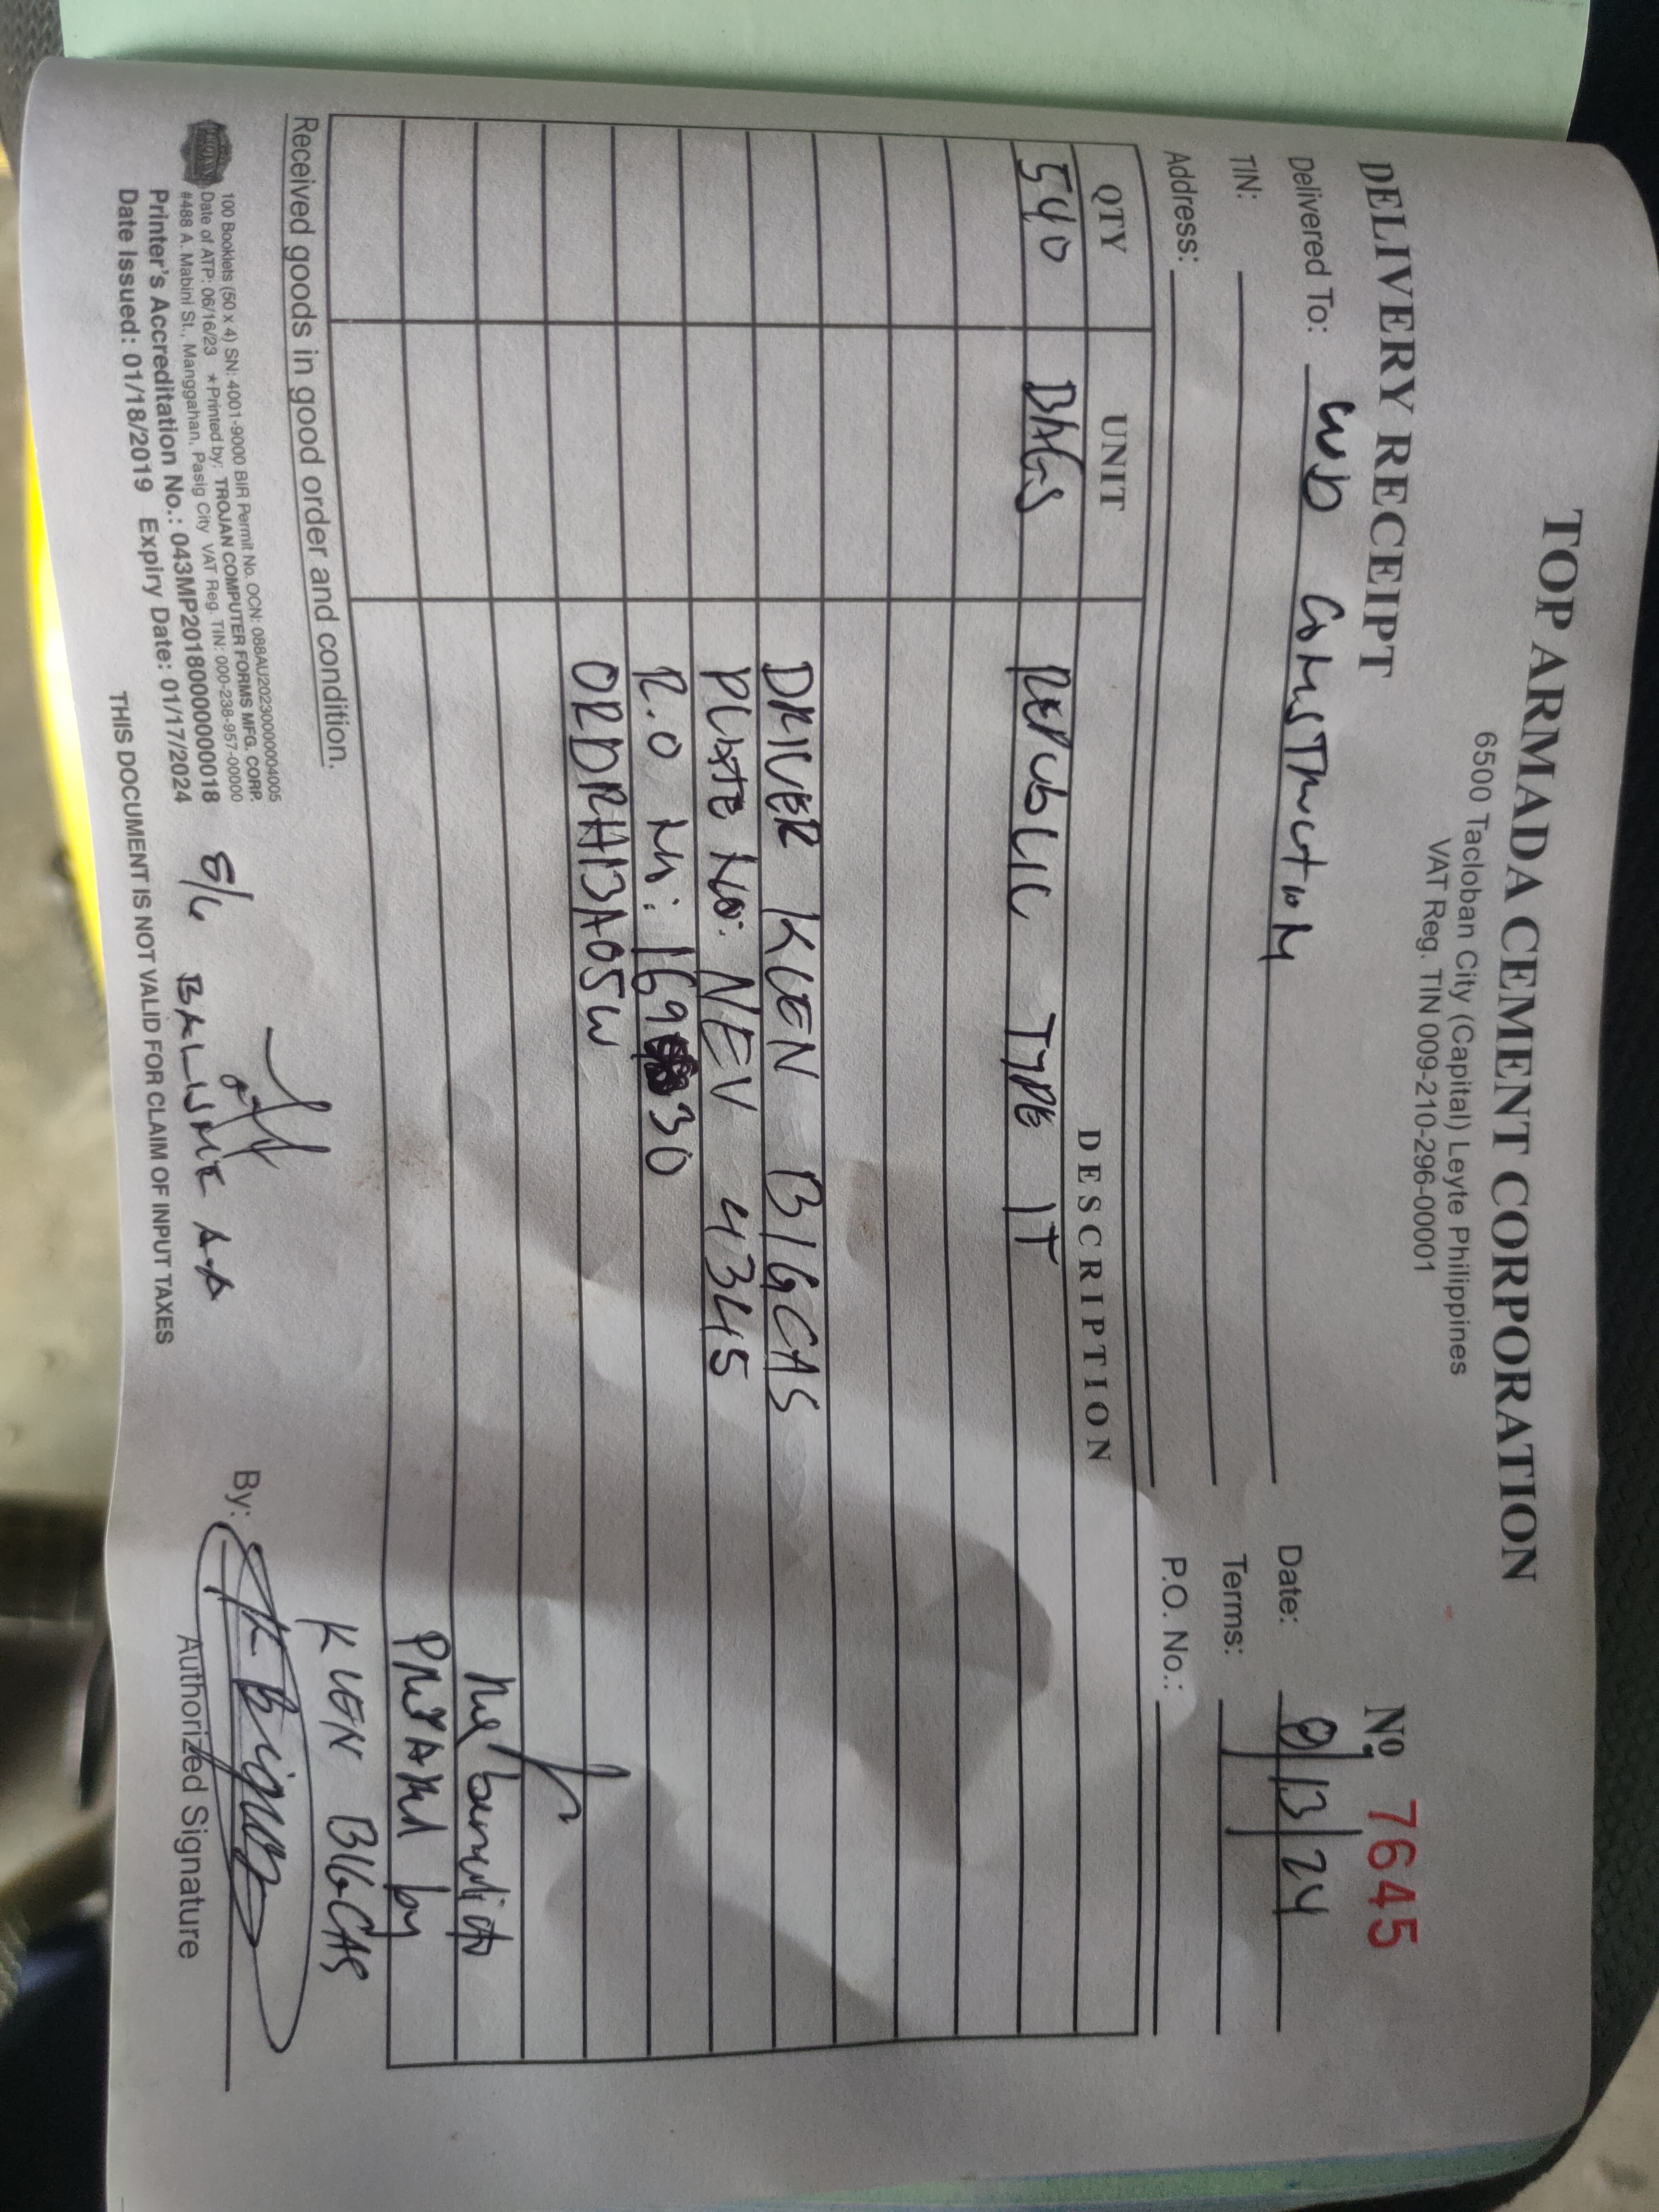 TOP ARMADA CEMENT CORPORATION
6500 Tacloban City (Capital) Leyte Philippines
VAT Reg. TIN 009-210-296-00001
DELIVERY RECEIPT
Nº 7645
Delivered To: WJD CONSTRUCTION
Date: 8/13/24
TIN:
Terms:
Address:
P.O. No.:
QTY UNIT DESCRIPTION
540 BAGS REPUBLIC TYPE 1T
DRIVER KLEN BIGCAS
PLATE NO: NEV 4345
R.O N: 16930
ORDRH13A05W
PREPARED by
Received goods in good order and condition.
KLEN BIGCAS
100 Booklets (50 x 4) SN: 4001-9000 BIR Permit No. OCN: 088AU20230000004005
Date of ATP: 06/16/23 ★Printed by: TROJAN COMPUTER FORMS MFG. CORP.
#488 A. Mabini St., Manggahan, Pasig City VAT Reg. TIN: 000-238-957-00000
Printer's Accreditation No.: 043MP20180000000018
Date Issued: 01/18/2019 Expiry Date: 01/17/2024
TROJAN
By:
Authorized Signature
THIS DOCUMENT IS NOT VALID FOR CLAIM OF INPUT TAXES